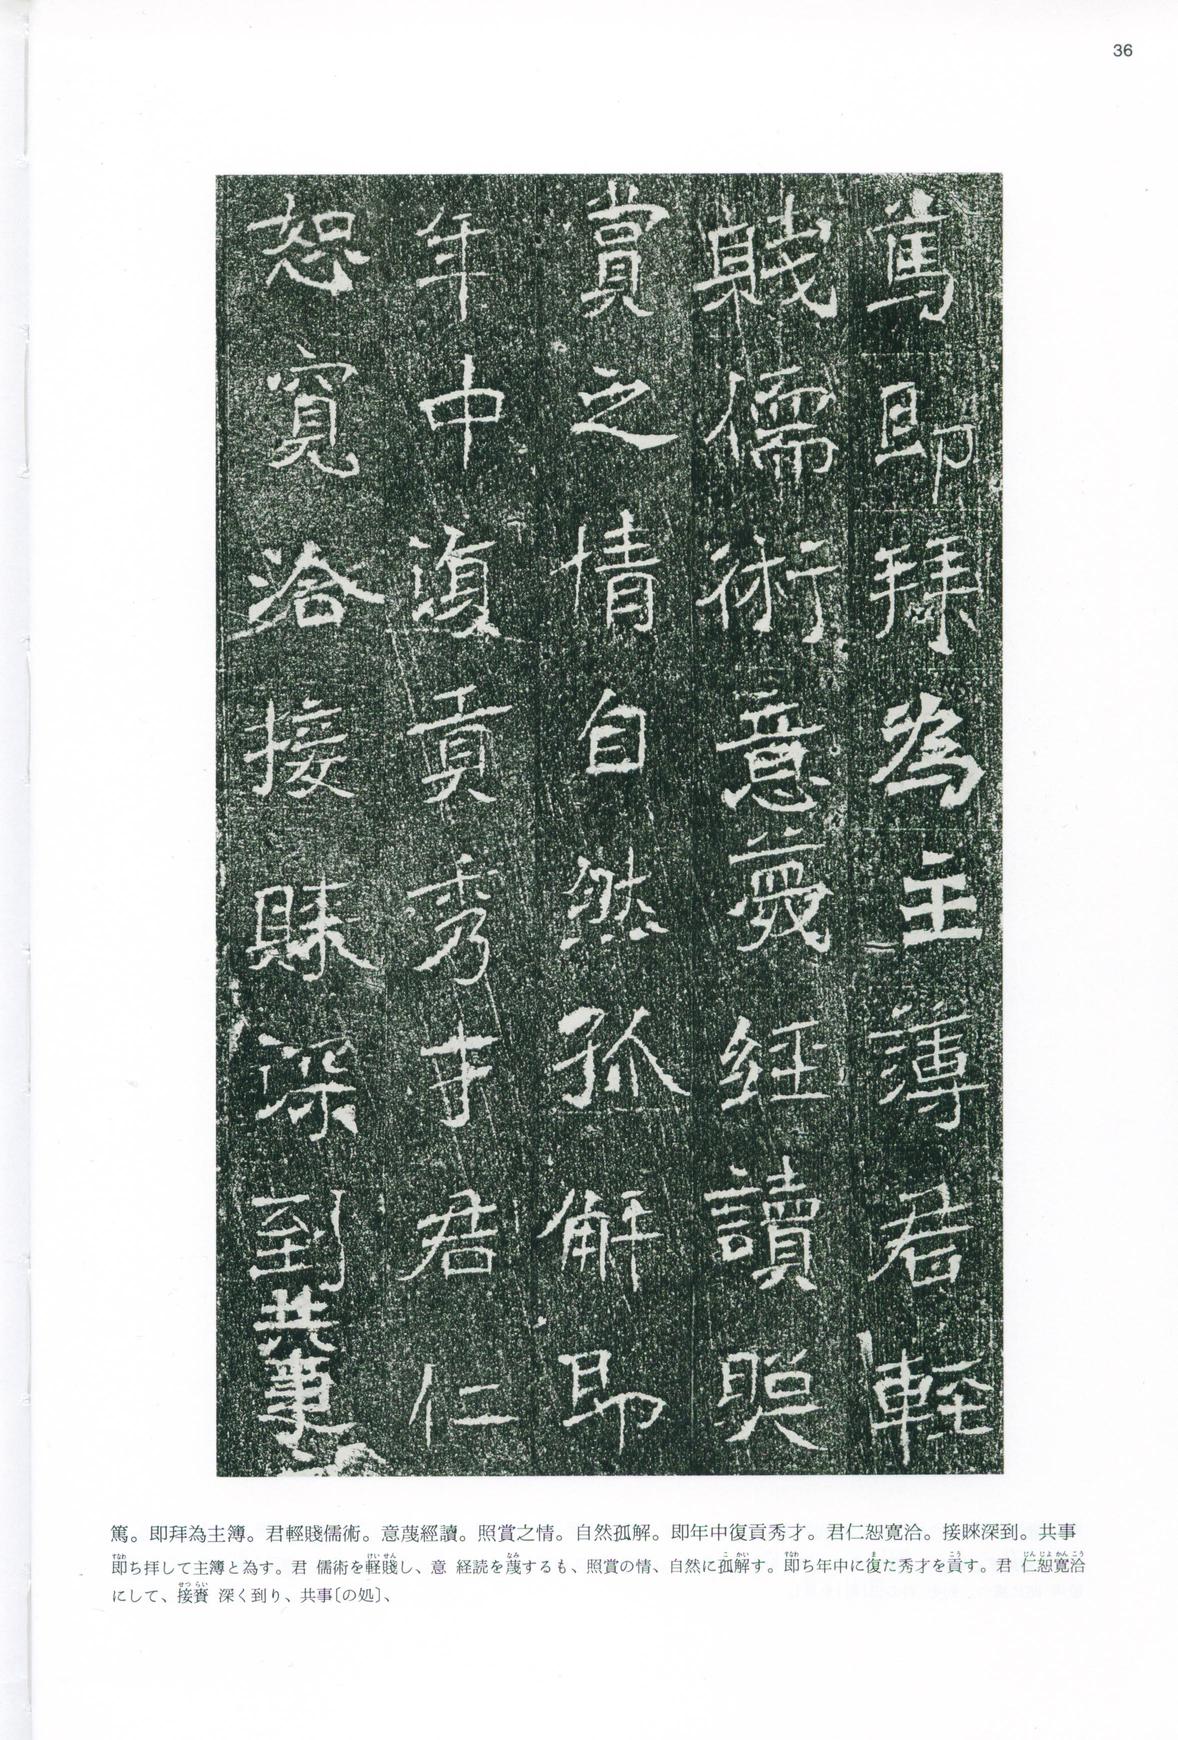 36
篤即拜為主薄君輕
賤儒術意蔑經讀照
賞之情自然孤解即
年中復貢秀才君仁
恕寬洽接賕深到共事
篤。即拜為主簿。君輕賤儒術。意蔑經讀。照賞之情。自然孤解。即年中復貢秀才。君仁恕寬洽。接賕深到。共事
即ち拝して主簿と為す。君 儒術を軽賤し、意 経読を蔑するも、照賞の情、自然に孤解す。即ち年中に復た秀才を貢す。君 仁恕寛洽
にして、接賚 深く到り、共事〔の処〕、